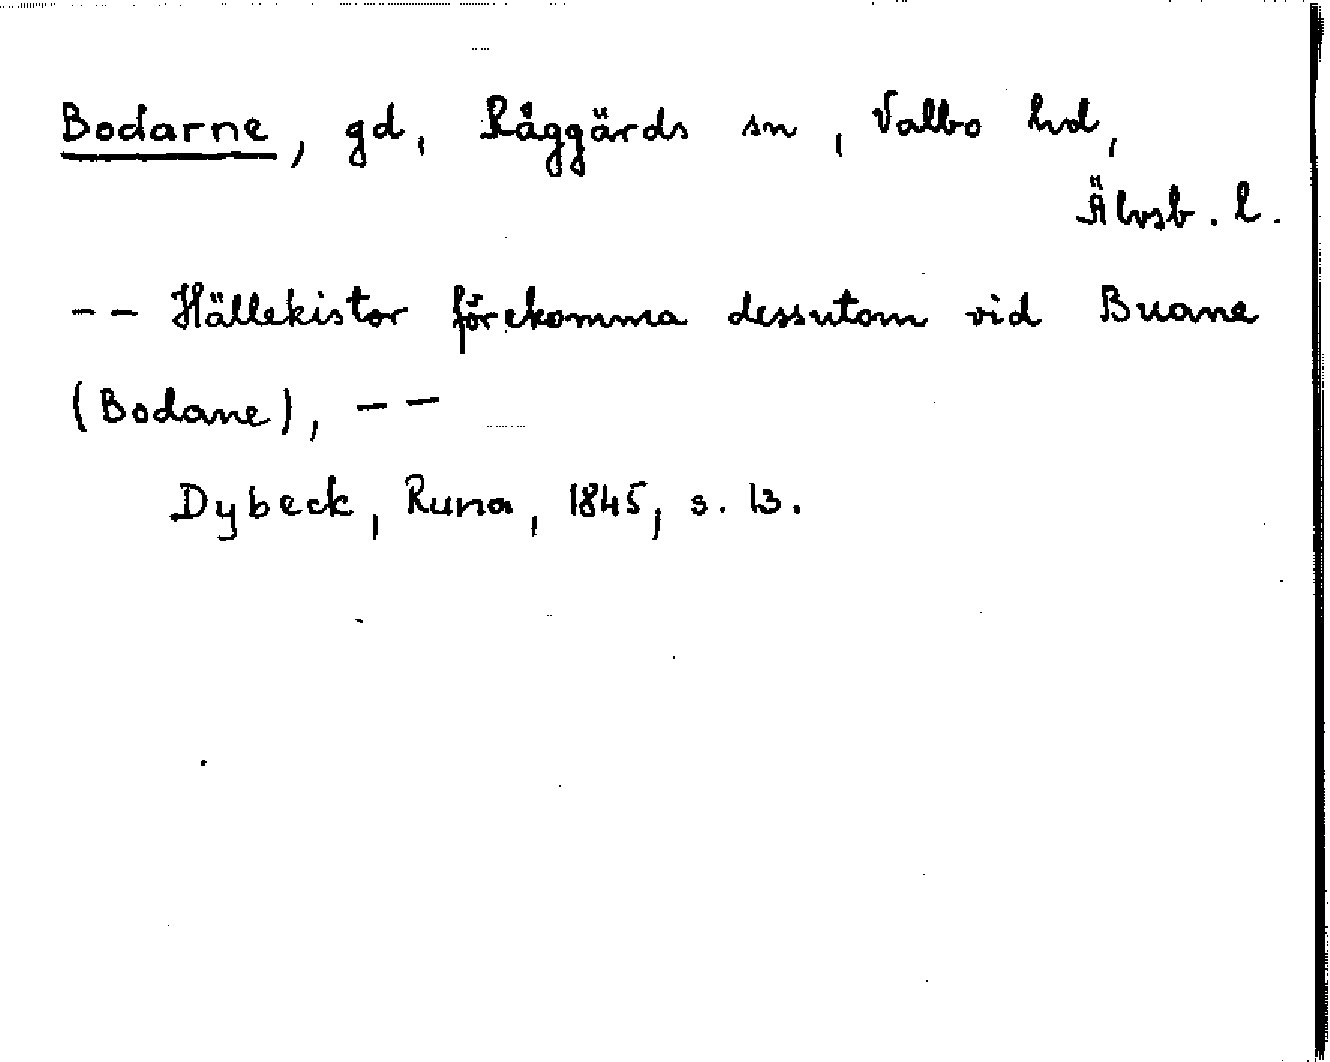 Bodarne, gd, Råggärds sn, Valbo hd,
Älvsb. l.
-- Hällekistor förekomma dessutom vid Buane
(Bodane), --
Dybeck, Runa, 1845, s. 13.